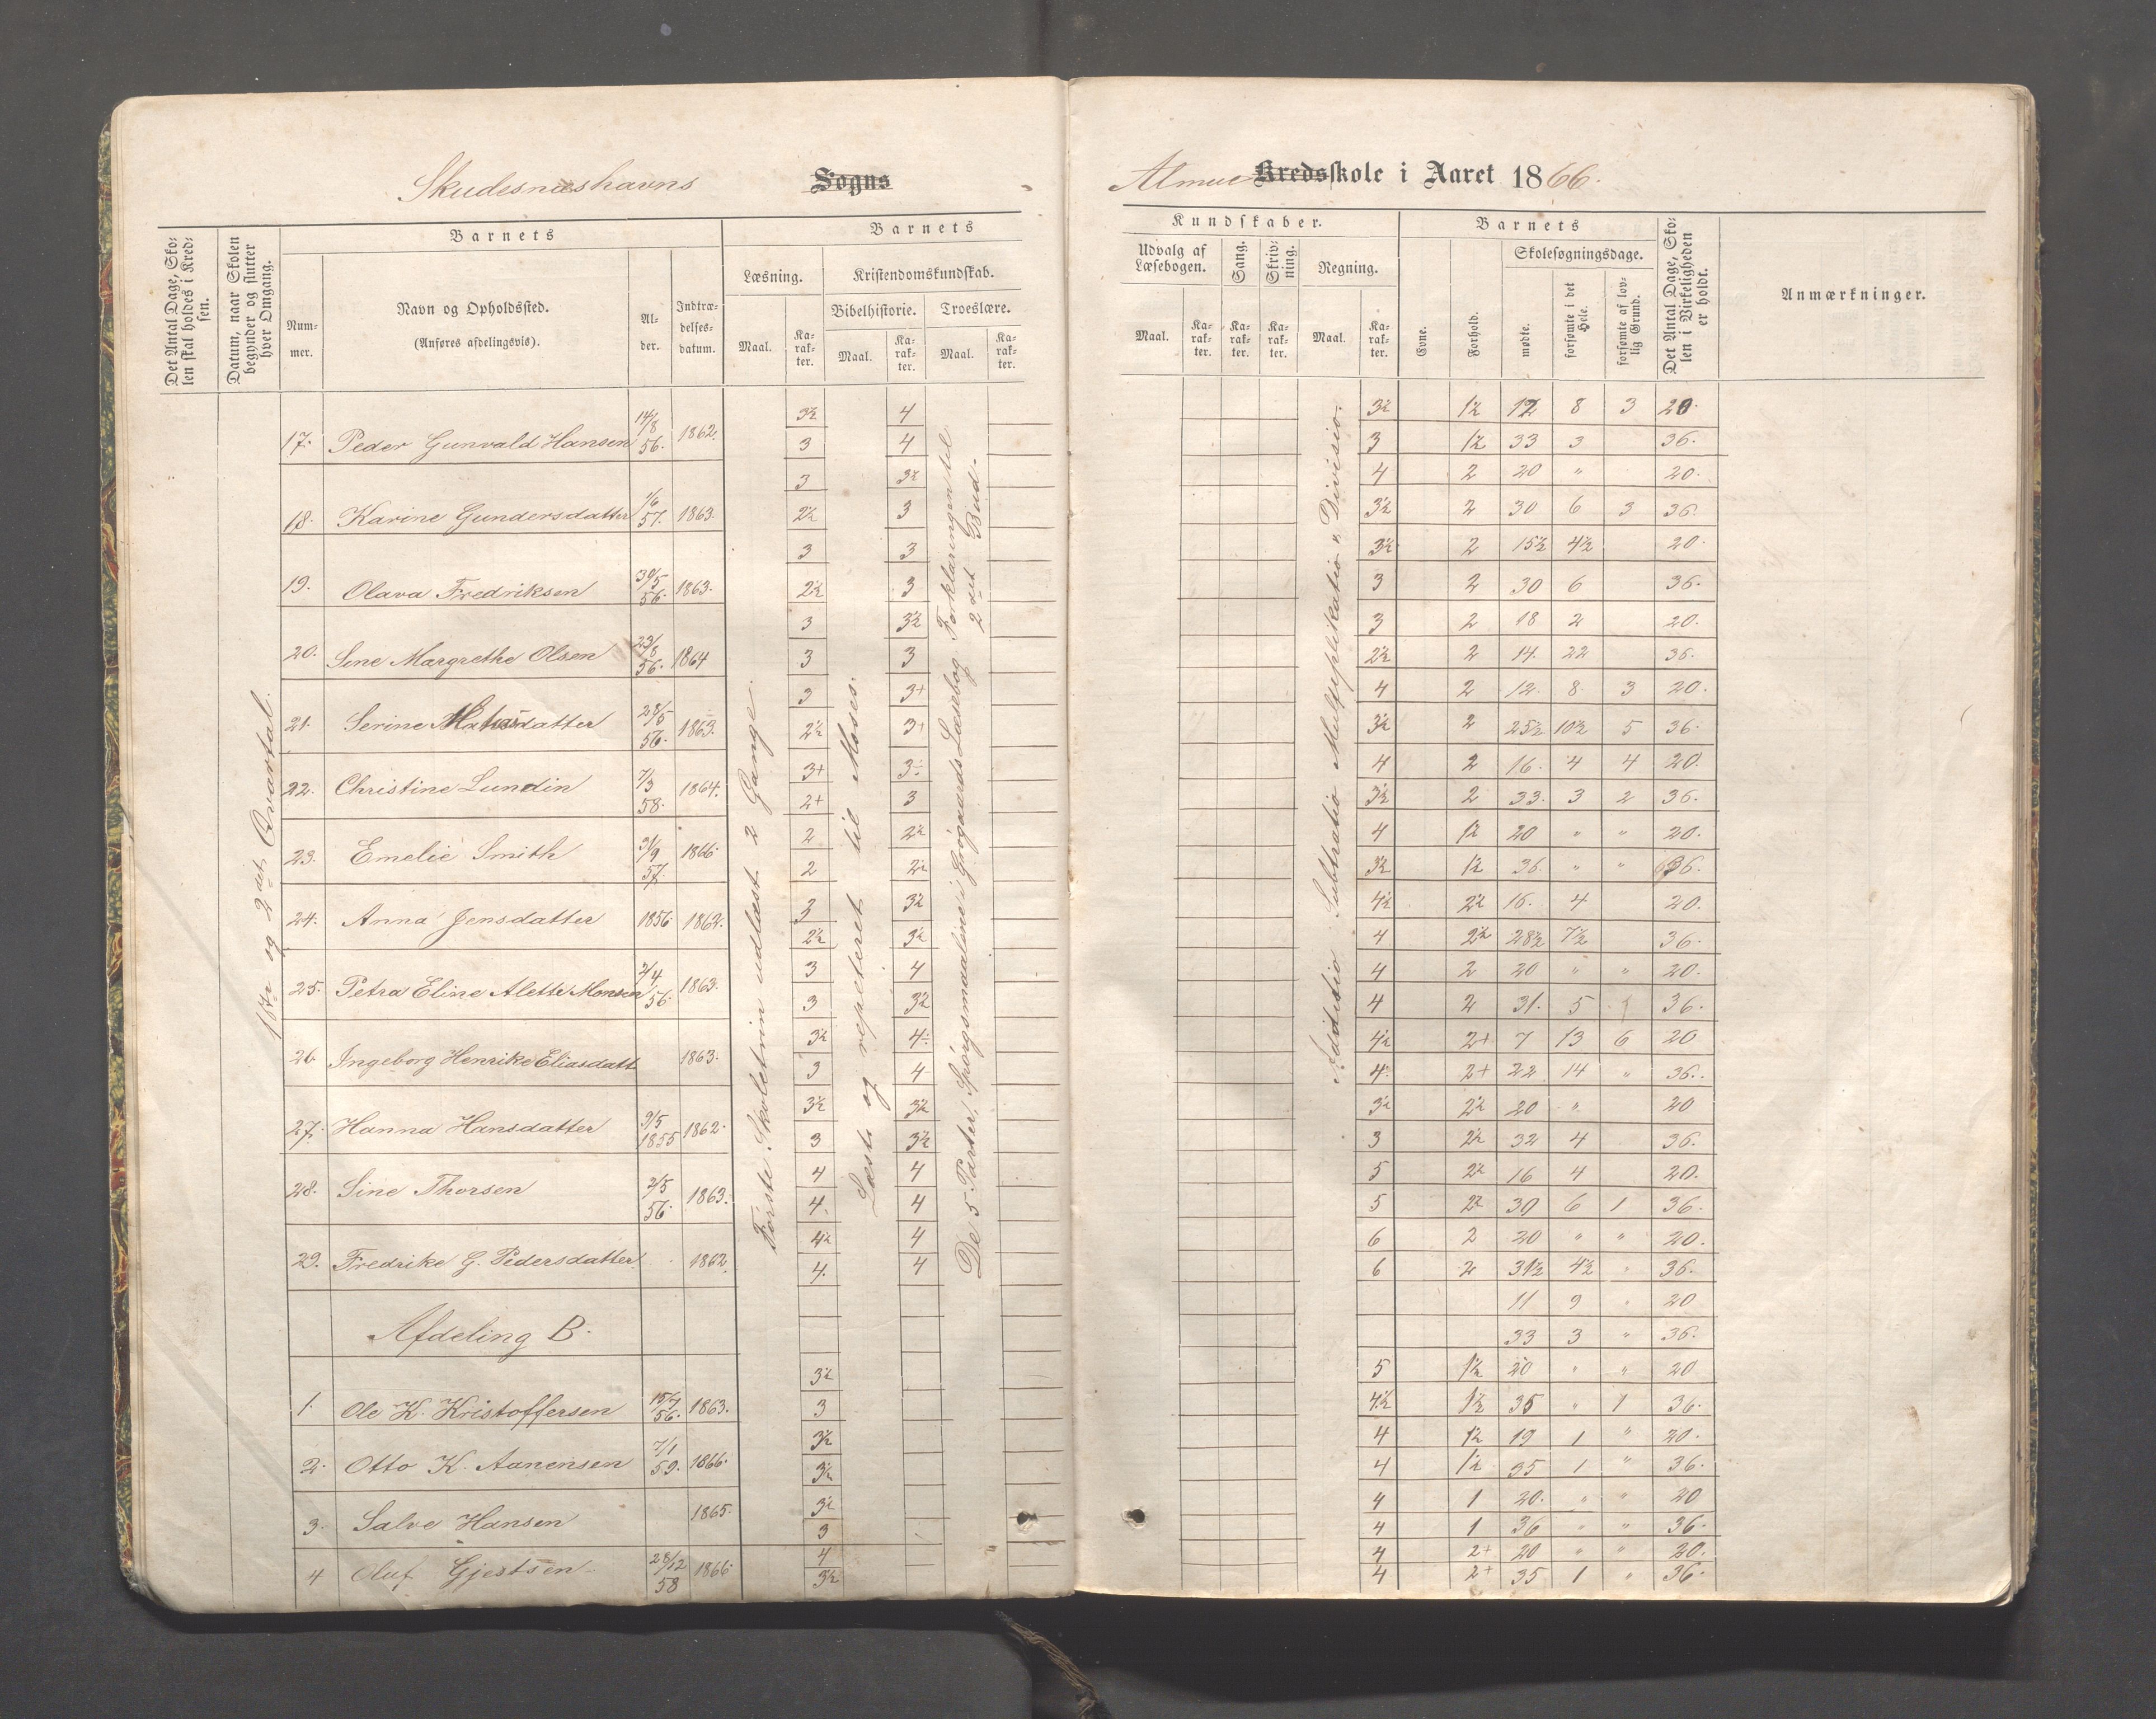 Skudesnæshavns Sogns
Almue Kredsskole i Aaret 1866.
Det Antal Dage, Skolen skal holdes i Kredsen.
Datum, naar Skolen begynder og slutter hver Omgang.
Barnets
Nummer.
Navn og Opholdssted.
(Anføres afdelingsvis).
Alder.
Indtrædelsesdatum.
Barnets
Læsning.
Maal.
Karakter.
Kristendomskundskab.
Bibelhistorie.
Maal.
Karakter.
Troeslære.
Maal.
Karakter.
Kundskaber.
Udvalg af Læsebogen.
Maal.
Karakter.
Sang.
Karakter.
Skrivning.
Karakter.
Regning.
Maal.
Karakter.
Barnets
Evne.
Forhold.
Skolesøgningsdage.
mødte.
forsømte i det Hele.
forsømte af lovlig Grund.
Det Antal Dage, Skolen i Virkeligheden er holdt.
Anmærkninger.
1ste og 2det Qvartal.
Første Skoletrin udlæst 2 Gange.
Læst og repeteret til Moses.
De 5 Parter, Spørgsmaalene i Grøgaards Læsebog Forklaringen til 2det Bud.
Additio Subtratio Multiplikatio " Divisio.
17. Peder Gunvald Hansen 14/8 56. 1862. 3½ 4 3½ 1½ 12 8 3 20.
3 4 3 1½ 33 3 36.
18. Karine Gundersdatter 1/6 57. 1863. 3 3½ 4 2 20 " 20.
2½ 3 3½ 2 30 6 3 36.
19. Olava Fredriksen 30/5 56. 1863. 3 3 3½ 2 15½ 4½ 20.
2½ 3 3 2 30 6 36.
20. Sine Margrethe Olsen 23/8 56. 1864 3 3½ 3 2 18 2 20.
3 3 2½ 2 14. 22 36.
21. Serine datter 28/5 56. 1863. 3 3+ 4 2 12. 8. 3 20.
2½ 3+ 3½ 2 25½ 10½ 5 36.
22. Christine Lundin 7/3 58. 1864. 3+ 3÷ 4 2 16. 4 4 20.
2+ 3 3½ 2 33. 3 2 36.
23. Emelie Smith 31/9 57. 1866. 2 2½ 4 1½ 20 " " 20.
2 2½ 3½ 1½ 36. " " 36.
24. Anna Jensdatter 1856. 1862. 3 3½ 4½ 2½ 16. 4 20.
2½ 3½ 4 2½ 28½ 7½ 36.
25. Petra Eline Alette Monsen 2/4 56. 1863. 3 4 4 2 20 " " 20.
3 3½ 4 2 31. 5 36.
26 Ingeborg Henrike Eliasdatt 1863. 3½ 4÷ 4½ 2+ 7 13 6 20
3 4 4. 2+ 22 14 " 36.
27. Hanna Hansdatter 3/5 1855 1862. 3½ 3½ 3½ 2½ 20 " 20
3 3½ 3 2½ 32 4 36.
28. Sine Thorsen 2/5 56. 1863. 4 4 5 2½ 16 4 20.
4. 4 5 2½ 30 6 1 36.
29. Fredrike G. Pedersdatter. 1862. 4½ 4 6 2 20 " " 20.
4. 4 6 2 31½ 4½ " 36.
11 9 " 20
Afdeling B.
33 3 " 36.
1. Ole K. Kristoffersen 15/7 56. 1863. 3½ 5 1½ 20 " " 20
3 4½ 1½ 35 " 1 36.
2. Otto K. Aanensen 7/1 59. 1866. 3½ 4 1½ 19 1 " 20.
3½ 4 1½ 35 1 " 36.
3. Salve Hansen 1865. 3½ 4 1 20. " " 20
3 4 1 36 " " 36.
4 Oluf Gjestsen 28/12 58 1866. 4 4 2+ 20 " " 20.
3½ 4 2+ 35 1 " 36.